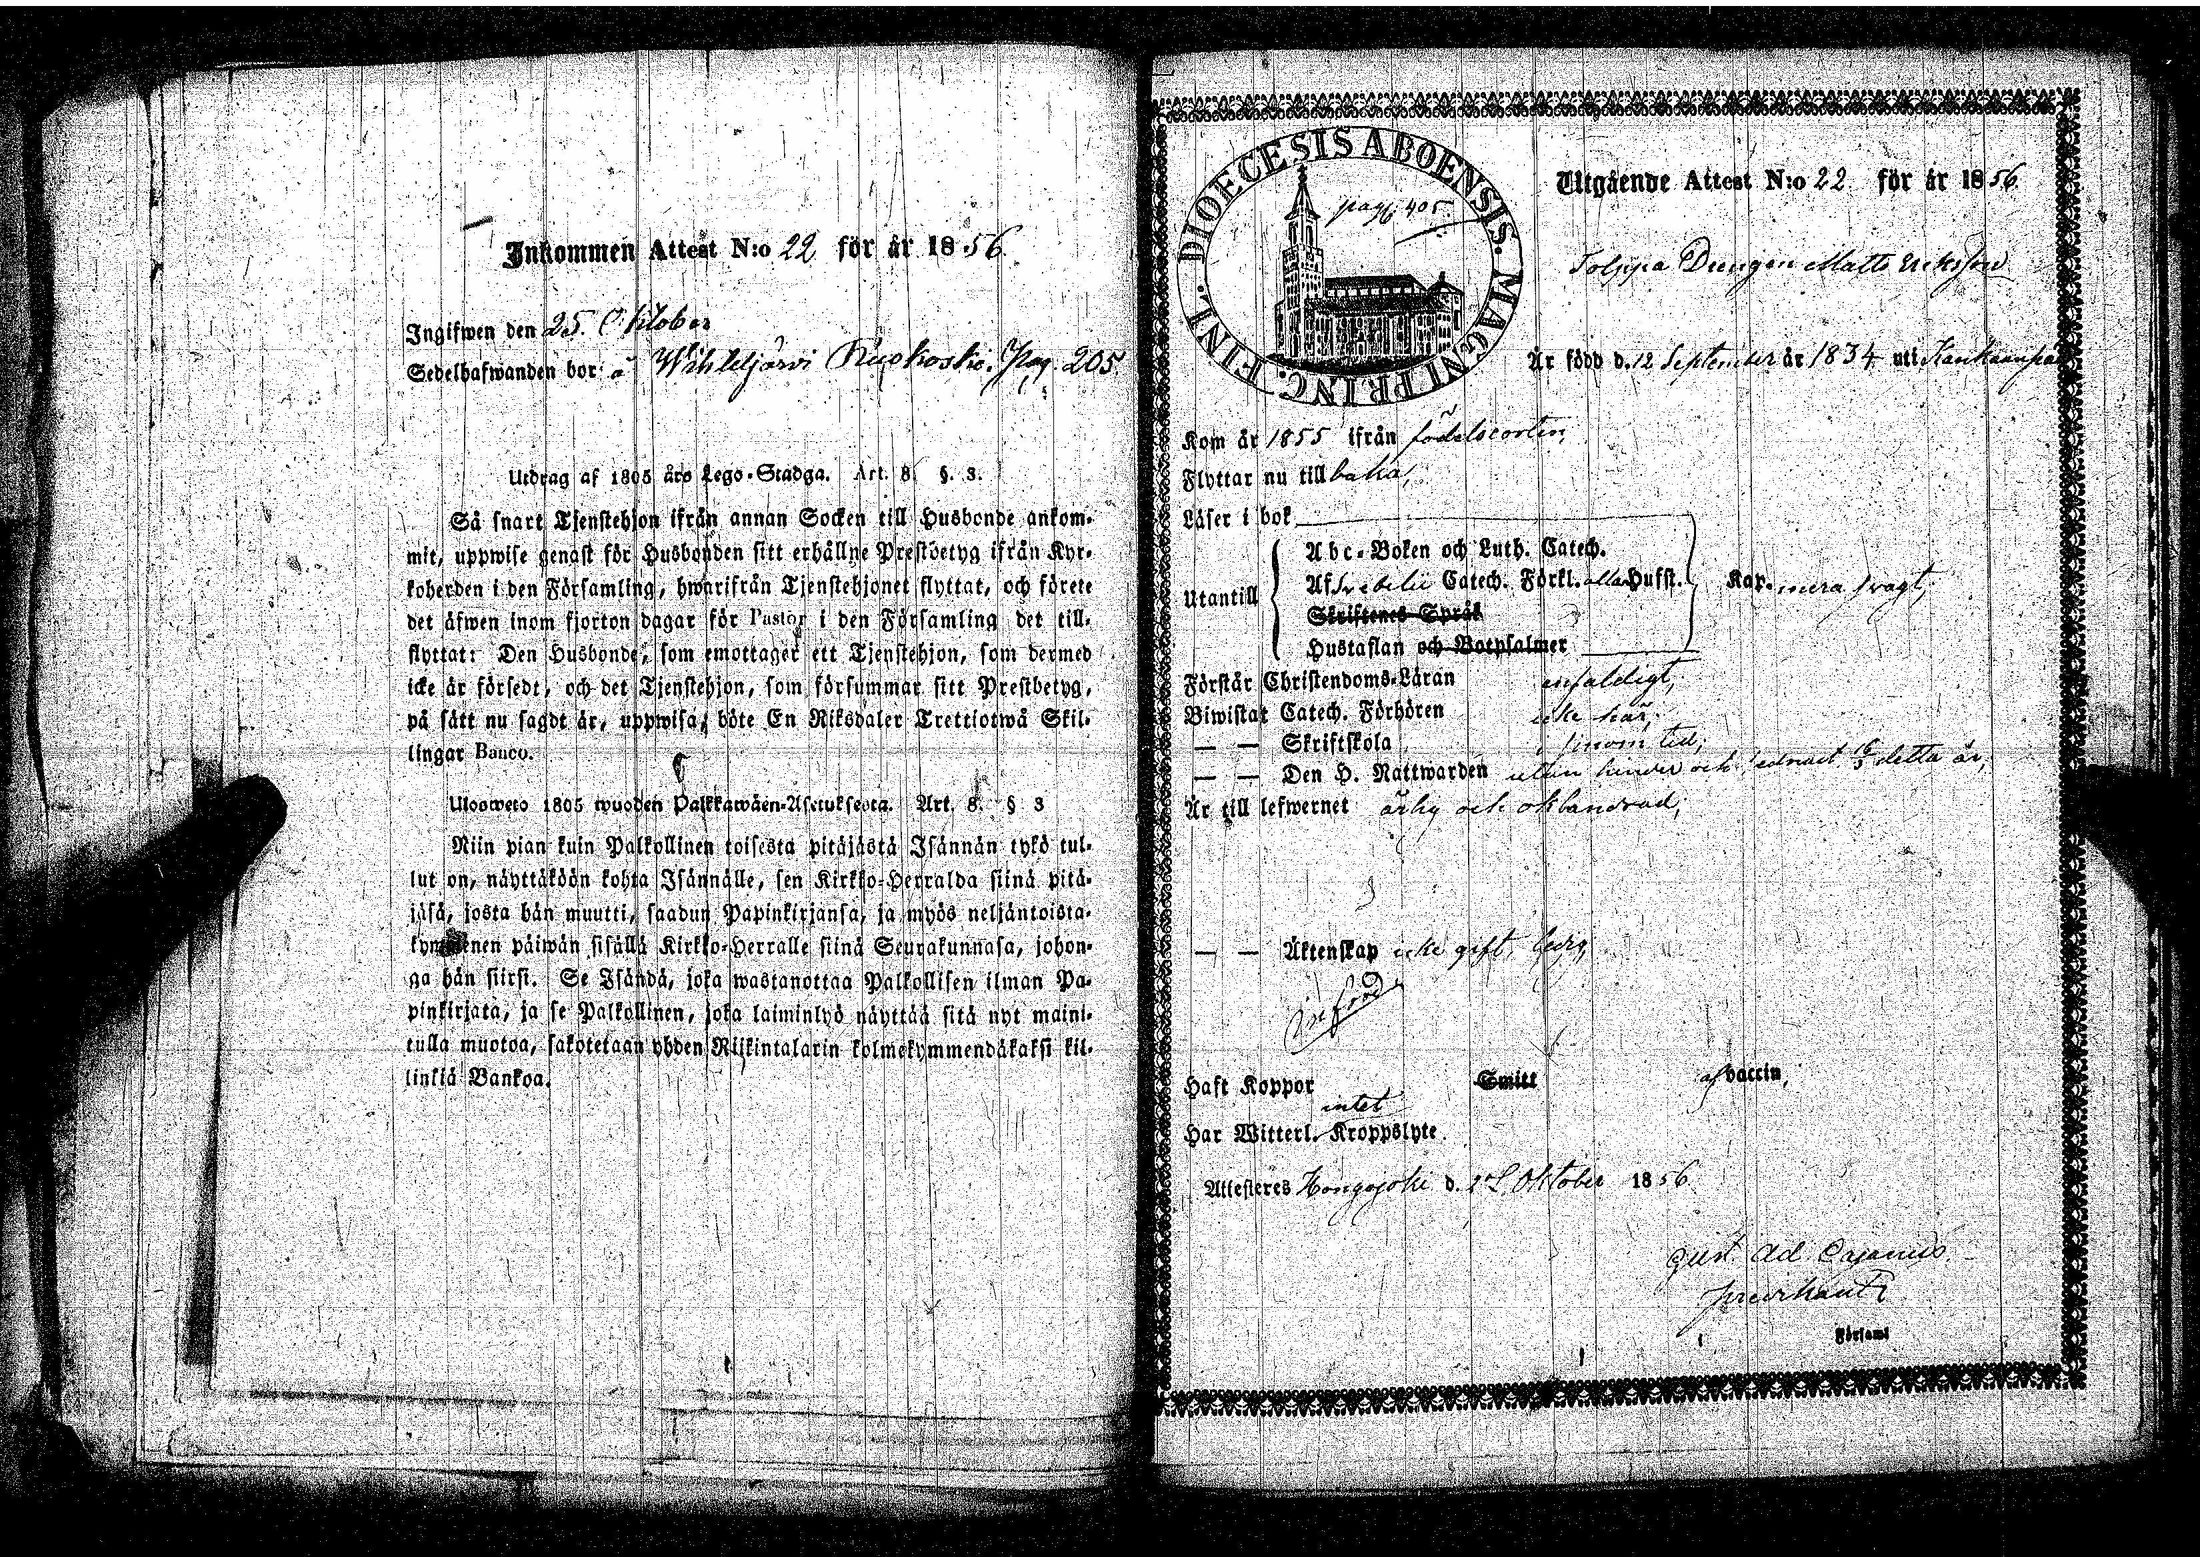 Inkommen Attest N:o 22 för år 1856.
Ingifwen den 25. Oktober
Sedelhafwanden bor å Wihteljärvi Ruokoski. Pag. 205.
Utdrag af 1805 års Lego-Stadga. Art. 8. §. 3.
Så snart Tjenstehjon ifrån annan Socken till Husbonde ankom-
mit, uppwise genast för Husbonden sitt erhållne Prestbetyg ifrån Kyr-
koherden i den Församling, hwarifrån Tjenstehjonet flyttat, och förete
det äfwen inom fjorton dagar för Pastor i den Församling det till-
flyttat: Den Husbonde, som emottager ett Tjenstehjon, som dermed
icke är försedt, och det Tjenstehjon, som försummar sitt Prestbetyg,
på sätt nu sagdt är, uppwisa, böte En Riksdaler Trettiotwå Skil-
lingar Banco.
Ulosweto 1805 wuoden Palkkawäen-Asetuksesta. Art. 8. § 3
Niin pian kuin Palkollinen toisesta pitäjästä Isännän tykö tul-
lut on, näyttäköön kohta Isännälle, sen Kirkko-Herralda siinä pitä-
jäsä, josta hän muutti, saadun Papinkirjansa, ja myös neljäntoista-
kymmenen päiwän sisällä Kirkko-Herralle siinä Seurakunnasa, johon-
ga hän siirsi. Se Isändä, joka wastanottaa Palkollisen ilman Pa-
pinkirjata, ja se Palkollinen, joka laiminlyö näyttää sitä nyt maini-
tulla muotoa, sakotetaan yhden Riikintalarin kolmekymmendäkaksi kil-
linkiä Bankoa.
DIOECESIS ABOENSIS. MAGNI PRINC. FINL.
pag. 405.
Utgående Attest N:o 22 för år 1856.
Drengen Matts Eriksson
Är född d. 12 September år 1834 uti Kankaanpää
Kom år 1855 ifrån födelseorten,
Flyttar nu till baka,
Läser i bok
Utantill
Abc-Boken och Luth. Catech.
Af Svebelii Catech. Förkl. alla Hufst.
Skriftenes Språk
Hustaflan och Botpsalmer
Kap. mera svagt,
Förstår Christendoms-Läran enfaldigt,
Biwistat Catech. Förhören icke här,
— — Skriftskola i sinom tid,
— — Den H. Nattwarden utan hinder och sednast detta år,
Är till lefwernet ärlig och oklandrad,
— — Äktenskap icke gift. ledig,
Haft Koppor Smitt af vaccin,
intet
Har Witterl. Kroppslyte.
Attesteres Hongojoki d. Oktober 1856.
Gust. Ad. Cajanus.
Församl